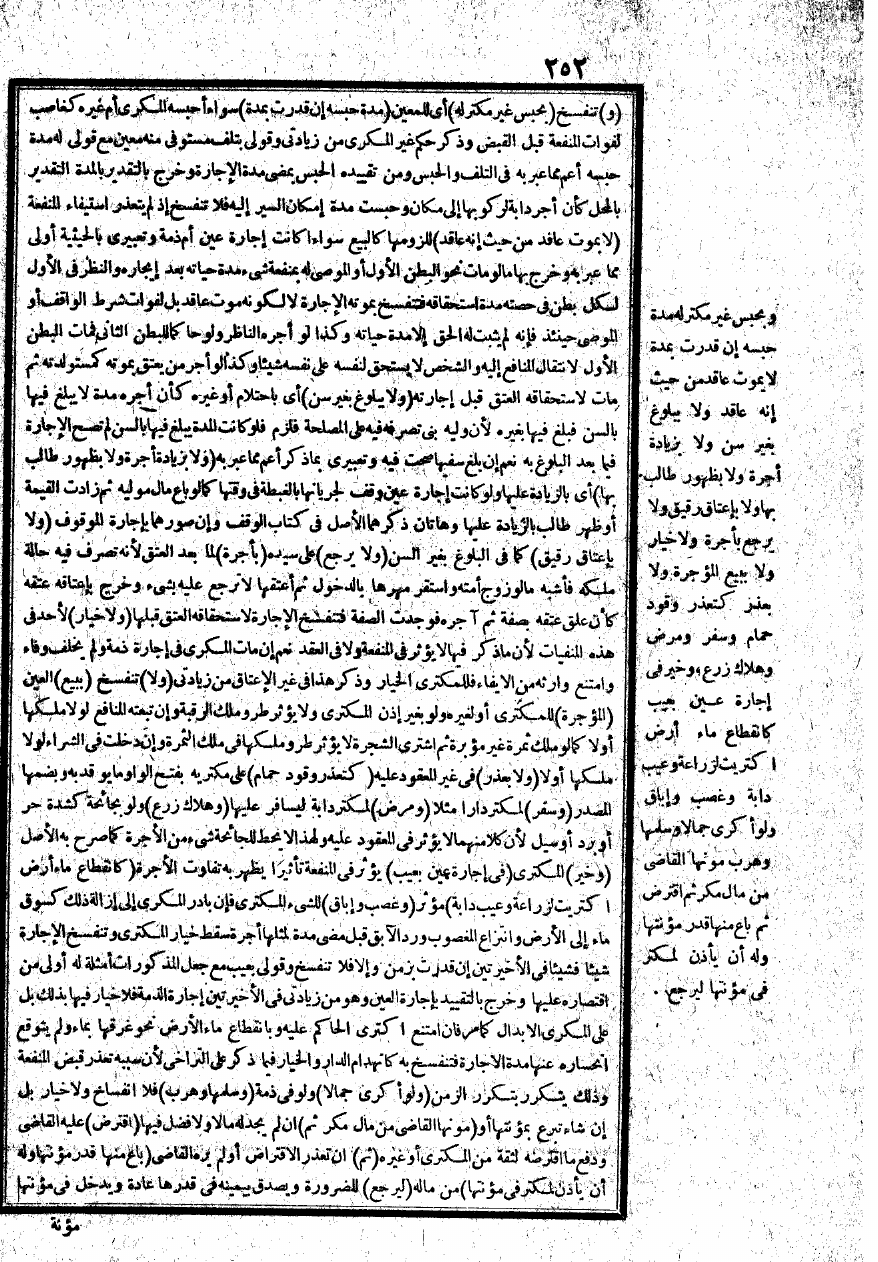 ٢٥٢
(و) تنفسخ (بحبس غير مكتر له) أى للمعين (مدة حبسه إن قدرت بمدة) سواء أحبسه المكرى أم غيره كغاصب
لفوات المنفعة قبل القبض وذكر حكم غير المكرى من زيادتى وقولى بتلف مستوفى منه معين مع قولى له مدة
حبسه أعم مما عبر به فى التلف والحبس ومن تقييده الحبس بمضى مدة الإجارة وخرج بالتقدير بالمدة التقدير
بالمحل كأن أجر دابة لركوبها إلى مكان وحبست مدة إمكان السير إليه فلا تنفسخ إذ لم يتعذر استيفاء المنفعة
(لا بموت عاقد من حيث إنه عاقد) للزومها كالبيع سواء اكانت إجارة عين أم ذمة وتعبيرى بالحيثية أولى
مما عبر به وخرج بها ما لو مات نحو البطن الأول أو الموصى له بمنفعة شىء مدة حياته بعد إيجاره والنظر فى الأول
لكل بطن فى حصته مدة استحقاقه فتنفسخ بموته الإجارة لا لكونه موت عاقد بل لفوات شرط الواقف أو
الموصى حينئذ فإنه لم يثبت له الحق إلا مدة حياته وكذا لو أجره الناظر ولو حاكما للبطن الثانى فمات البطن
الأول لانتقال المنافع إليه والشخص لا يستحق لنفسه على نفسه شيئا وكذا لو أجر من يعتق بموته كمستولدته ثم
مات لاستحقاقه العتق قبل إجارته (ولا ببلوغ بغير سن) أى باحتلام أو غيره كأن أجره مدة لا يبلغ فيها
بالسن فبلغ فيها بغيره لأن وليه بنى تصرفه فيه على المصلحة فلزم فلو كانت المدة يبلغ فيها بالسن لم تصح الإجارة
فيما بعد البلوغ به نعم إن بلغ سفيها صحت فيه وتعبيرى بما ذكر أعم مما عبر به (ولا بزيادة أجرة ولا بظهور طالب
بها) أى بالزيادة عليها ولو كانت إجارة عين وقف لجريانها بالغبطة فى وقتها كما لو باع مال موليه ثم زادت القيمة
أو ظهر طالب بالزيادة عليها وهاتان ذكرهما الأصل فى كتاب الوقف وإن صورهما بإجارة الموقوف (ولا
بإعتاق رقيق) كما فى البلوغ بغير السن (ولا يرجع) على سيده (بأجرة) لما بعد العتق لأنه تصرف فيه حالة
ملكه فأشبه ما لو زوج أمته واستقر مهرها بالدخول ثم أعتقها لا ترجع عليه بشىء وخرج بإعتاقه عتقه
كأن علق عتقه بصفة ثم آجره فوجدت الصفة فتنفسخ الإجارة لاستحقاقه العتق قبلها (ولا خيار) لأحد فى
هذه المنفيات لأن ما ذكر فيها لا يؤثر فى المنفعة ولا فى العقد نعم إن مات المكرى فى إجارة ذمة ولم يخلف وفاء
وامتنع وارثه من الايفاء فللمكترى الخيار وذكر هذا فى غير الإعتاق من زيادتى (ولا) تنفسخ (ببيع) العين
(المؤجرة) للمكترى أو لغيره ولو بغير إذن المكترى ولا يؤثر طرو ملك الرقبة وإن تبعته المنافع لولا ملكها
أولا كما لو ملك ثمرة غير مؤبرة ثم اشترى الشجرة لا يؤثر طرو ملكها فى ملك الثمرة وإن دخلت فى الشراء لولا
ملكها أولا (ولا بعذر) فى غير المعقود عليه (كتعذر وقود حمام) على مكتريه بفتح الواو ما يوقد به وبضمها
المصدر (وسفر) لمكتر دارا مثلا (ومرض) لمكتر دابة ليسافر عليها (وهلاك زرع) ولو بجائحة كشدة حر
أو برد أو سيل لأن كلا منهما لا يؤثر فى المعقود عليه ولهذا لا نحط للجائحة شىء من الأجرة كما صرح به الأصل
(وخير) المكترى (فى إجارة عين بعيب) يؤثر فى المنفعة تأثيرا يظهر به تفاوت الأجرة (كانقطاع ماء أرض
اكتريت لزراعة وعيب دابة) مؤثر (وغصب وإباق) للشىء المكترى فإن بادر المكرى إلى إزالة ذلك كسوق
ماء إلى الأرض وانتزاع المغصوب ورد الآبق قبل مضى مدة لمثلها أجرة سقط خيار المكترى وتنفسخ الإجارة
شيئا فشيئا فى الأخيرتين إن قدرت بزمن وإلا فلا تنفسخ وقولى بعيب مع جعل المذكورات أمثلة له أولى من
اقتصاره عليها وخرج بالتقييد بإجارة العين وهو من زيادتى فى الأخيرتين إجارة الذمة فلا خيار فيها بذلك بل
على المكرى الابدال كما مر فان امتنع اكترى الحاكم عليه وبانقطاع ماء الأرض نحو غرقها بماء ولم يتوقع
انحساره عنها مدة الاجارة فتنفسخ به كانهدام الدار والخيار فيما ذكر على التراخى لأن سببه تعذر قبض المنفعة
وذلك يتكرر بتكرر الزمن (ولو أكرى جمالا) ولو فى ذمة (وسلمها وهرب) فلا انفساخ ولا خيار بل
إن شاء تبرع بمؤنتها أو (مونها القاضى من مال مكر ثم) ان لم يجد له مالا ولا فضل فيها (اقترض) عليه القاضى
ودفع ما اقترضه لثقة من المكترى أو غيره (ثم) ان تعذر الاقتراض أو لم يره القاضى (باع منها قدر مؤنتها وله
أن يأذن لمكتر فى مؤنتها) من ماله (ليرجع) للضرورة ويصدق بيمينه فى قدرها عادة ويدخل فى مؤنتها
مؤنة
وبحبس غير مكتر له مدة
حبسه إن قدرت بمدة
لا بموت عاقد من حيث
إنه عاقد ولا ببلوغ
بغير سن ولا بزيادة
أجرة ولا بظهور طالب
بها ولا بإعتاق رقيق ولا
يرجع بأجرة ولا خيار
ولا ببيع المؤجرة ولا
بعذر كتعذر وقود
حمام وسفر ومرض
وهلاك زرع، وخير فى
إجارة عين بعيب
كانقطاع ماء أرض
اكتريت لزراعة وعيب
دابة وغصب وإباق
ولو أكرى جمالا وسلمها
وهرب مونها القاضى
من مال مكر ثم اقترض
ثم باع منها قدر مؤنتها
وله أن يأذن لمكتر
فى مؤنتها ليرجع .